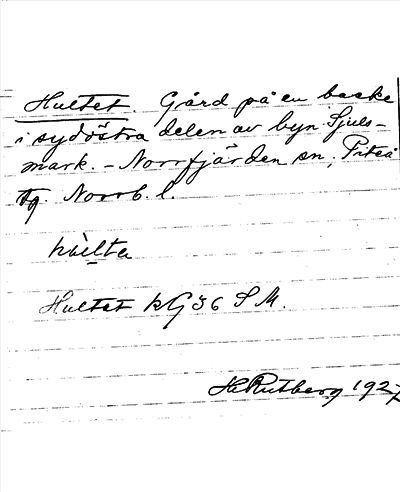 Hultet. Gård på en backe
i sydöstra delen av byn Sjuls-
mark. - Norrfjärden sn, Piteå
tg. Norrb. l.
hùlta
Hultet kG36 SM.
H Rutberg 1927